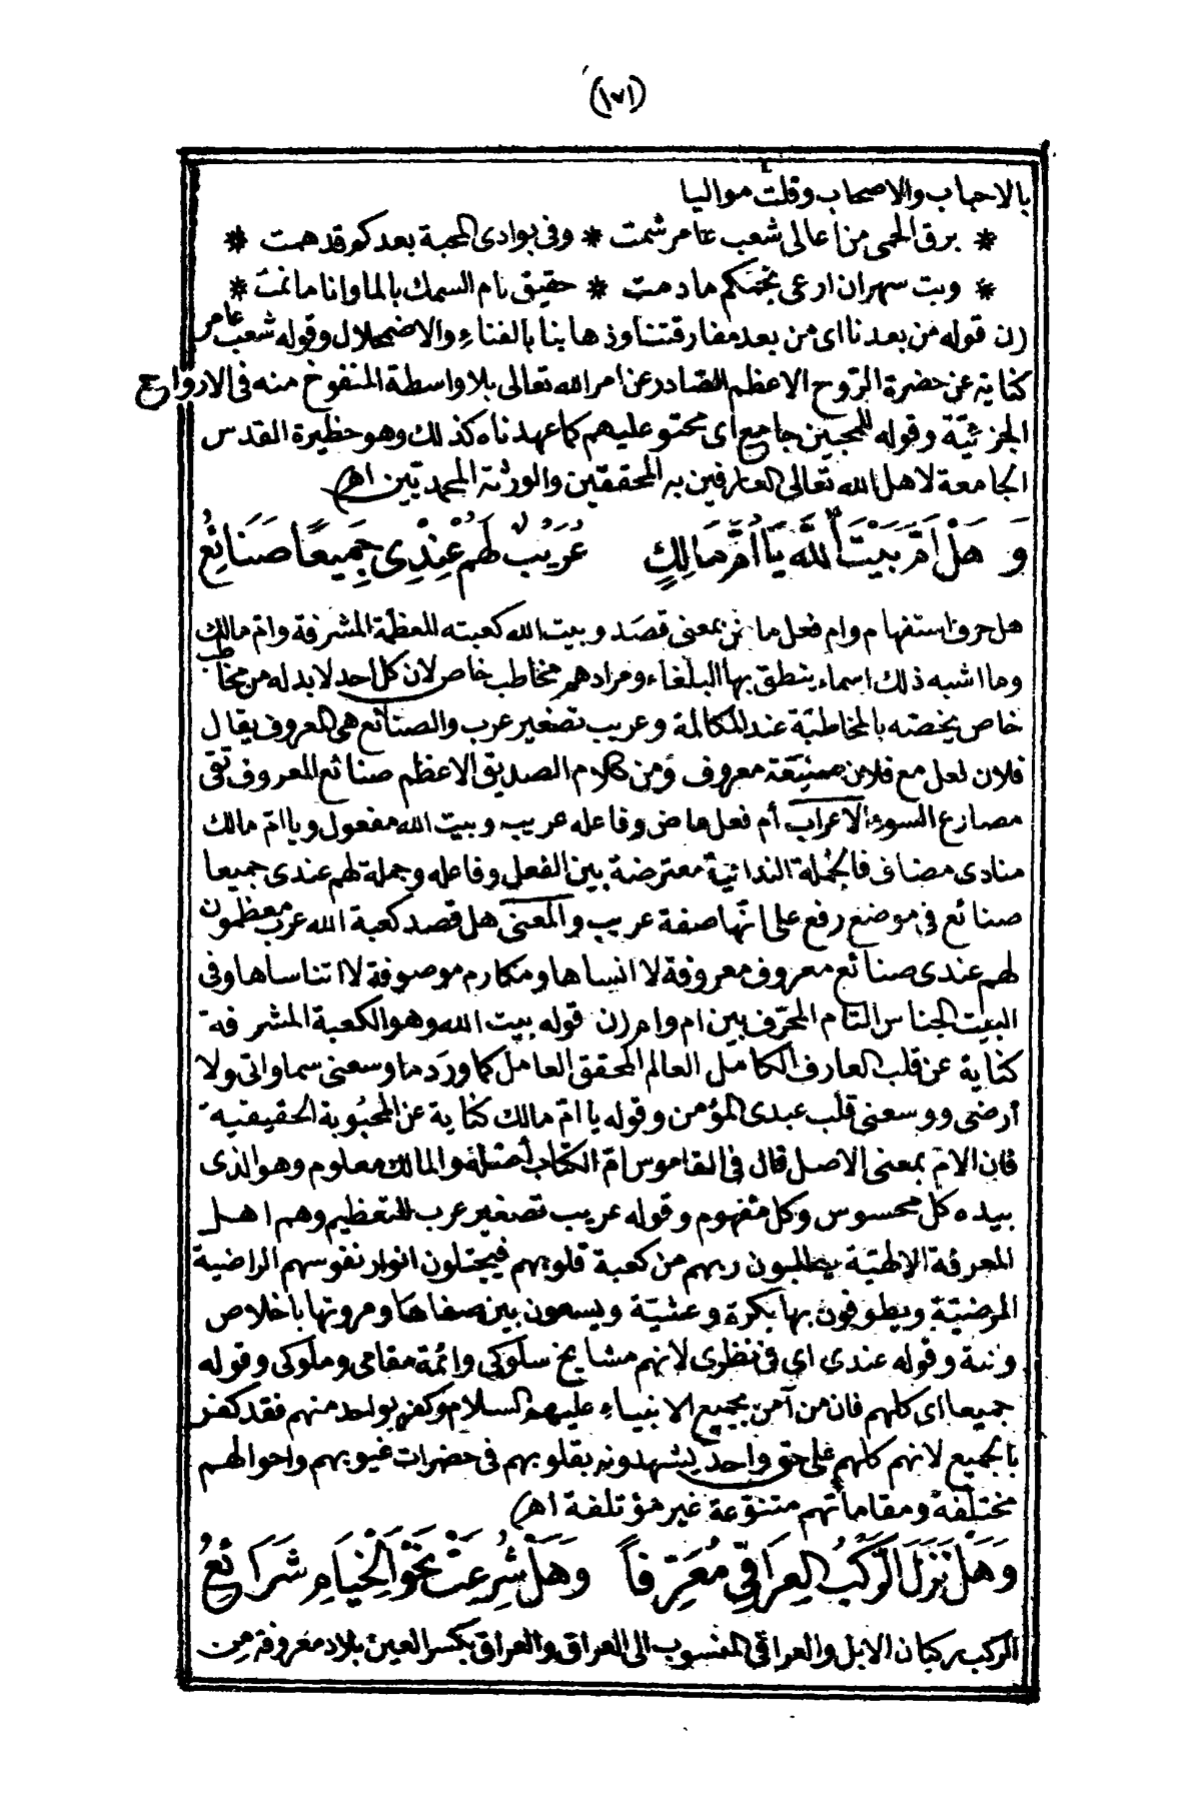 (١٧١)
بالاحباب والاصحاب وقلت مواليا
* برق الحمى من اعالى شعب عامر شمت * وفى بوادى المحبة بعدكم قد همت *
* وبت سهران ارعى نجمكم مادمت * حقيق نام السمك بالما وانا ما نمت *
(ن قوله من بعدنا اى من بعد مفارقتنا وذهابنا بالفناء والاضمحلال وقوله شعب عامر
كناية عن حضرة الروح الاعظم الصادر عن امر الله تعالى بلا واسطة المنفوخ منه فى الارواح
الجزئيّة وقوله للمحبين جامع اى محتو عليهم كما عهدناه كذلك وهو حظيرة القدس
الجامعة لاهل الله تعالى العارفين به المحققين والورثة المحمديّين اهـ)
وَ هَلْ اَمَّ بَيْتَ اللّٰهِ يَا اُمَّ مَالِكٍ عُرَيْبٌ لَهُمْ عِنْدِى جَمِيعًا صَنَائِعُ
هل حرف استفهام وام فعل ماض بمعنى قصَد وبيت الله كعبته المعظّمة المشرفة وامّ مالك
وما اشبه ذلك اسماء ينطق بها البلغاء ومرادهم مخاطب خاص لان كل احد لابد له من مخاطب
خاص يخصّه بالمخاطبّة عند المكالمة وعريب تصغير عرب والصنائع هى المعروف يقال
فلان فعل مع فلان صنيعَة معروف وَمن كلام الصديق الاعظم صنائع المعروف تقى
مصارع السوء الاعراب أم فعل ماض وفاعله عريب وبيت الله مفعول ويا امّ مالك
منادى مضاف فالجُملة الندائيّة معترضة بين الفعل وفاعله وجملة لهم عندى جميعا
صنائع فى موضع رفع على انّها صفة عريب والمعنى هل قصد كعبة الله عرب معظمون
لهم عندى صنائع معروف معروفة لا انساها ومكارم موصوفة لا اتناساها وفى
البيت الجناس التام المحرّف بين ام وام (ن قوله بيت الله وهو الكعبة المشرفة
كناية عن قلب العارف الكامل العالم المحقق العامل كما ورَد ما وسعنى سماواتى ولا
أرضى ووسعنى قلب عبدى المؤمن وقوله يا امّ مالك كناية عن المحبُوبة الحقيقية
فان الامّ بمعنى الاصل قال فى القاموس امّ الكتاب أصله والمالك معلوم وهو الذى
بيده كل محسوس وكل مفهوم وقوله عريب تصغير عرب للتعظيم وهم اهل
المعرفة الالهيّة يطلبون ربهم من كعبة قلوبهم فيجتلون انوار نفوسهم الراضية
المرضيّة ويطوفون بها بكرة وعشيّة ويسعون بين صفاهَا ومروتها باخلاص
ونية وقوله عندى اى فى نظرى لانهم مشايخ سلوكى وائمّة مقامى وملوكى وقوله
جميعا اى كلهم فان من آمن بجميع الانبياء عليهم السلام وكفر بواحد منهم فقد كفر
بالجميع لانهم كلهم على حق واحد يشهدونه بقلوبهم فى حضرات غيوبهم واحوالهم
مختلفة ومقاماتهم متنوّعة غير مؤتلفة اهـ)
وَهَلْ نَزَلَ الرَّكْبُ العِرَاقِىُّ مُعَرِّفاً وَهَلْ شُرِعَتْ نَحْوَ الْخِيَامِ شَرَائِعُ
الركب ركبان الابل والعراقى المنسوب الى العراق والعراق بكسر العين بلاد معروفة من